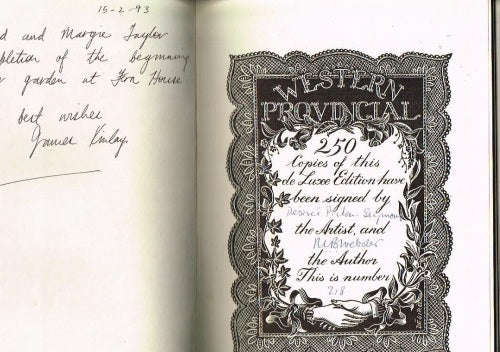 15-2-93
d and Margie Taylor
pletion of the beginning
garden at Fern House
best wishes
James Kinlay.
WESTERN
PROVINCIAL
250
Copies of this
de Luxe Edition have
been signed by
the Artist, and
the Author
This is number
218